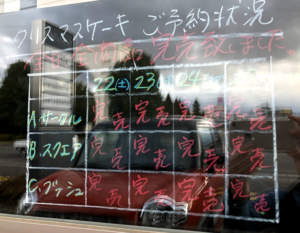 クリスマスケーキ ご予約状況
完売致しました。
22(土) 23 24
A.サークル 完売 完売 完売 完売
B.スクエア 完売 完売 完売 完売
C.ブッシュ 完売 完売 完売 完売